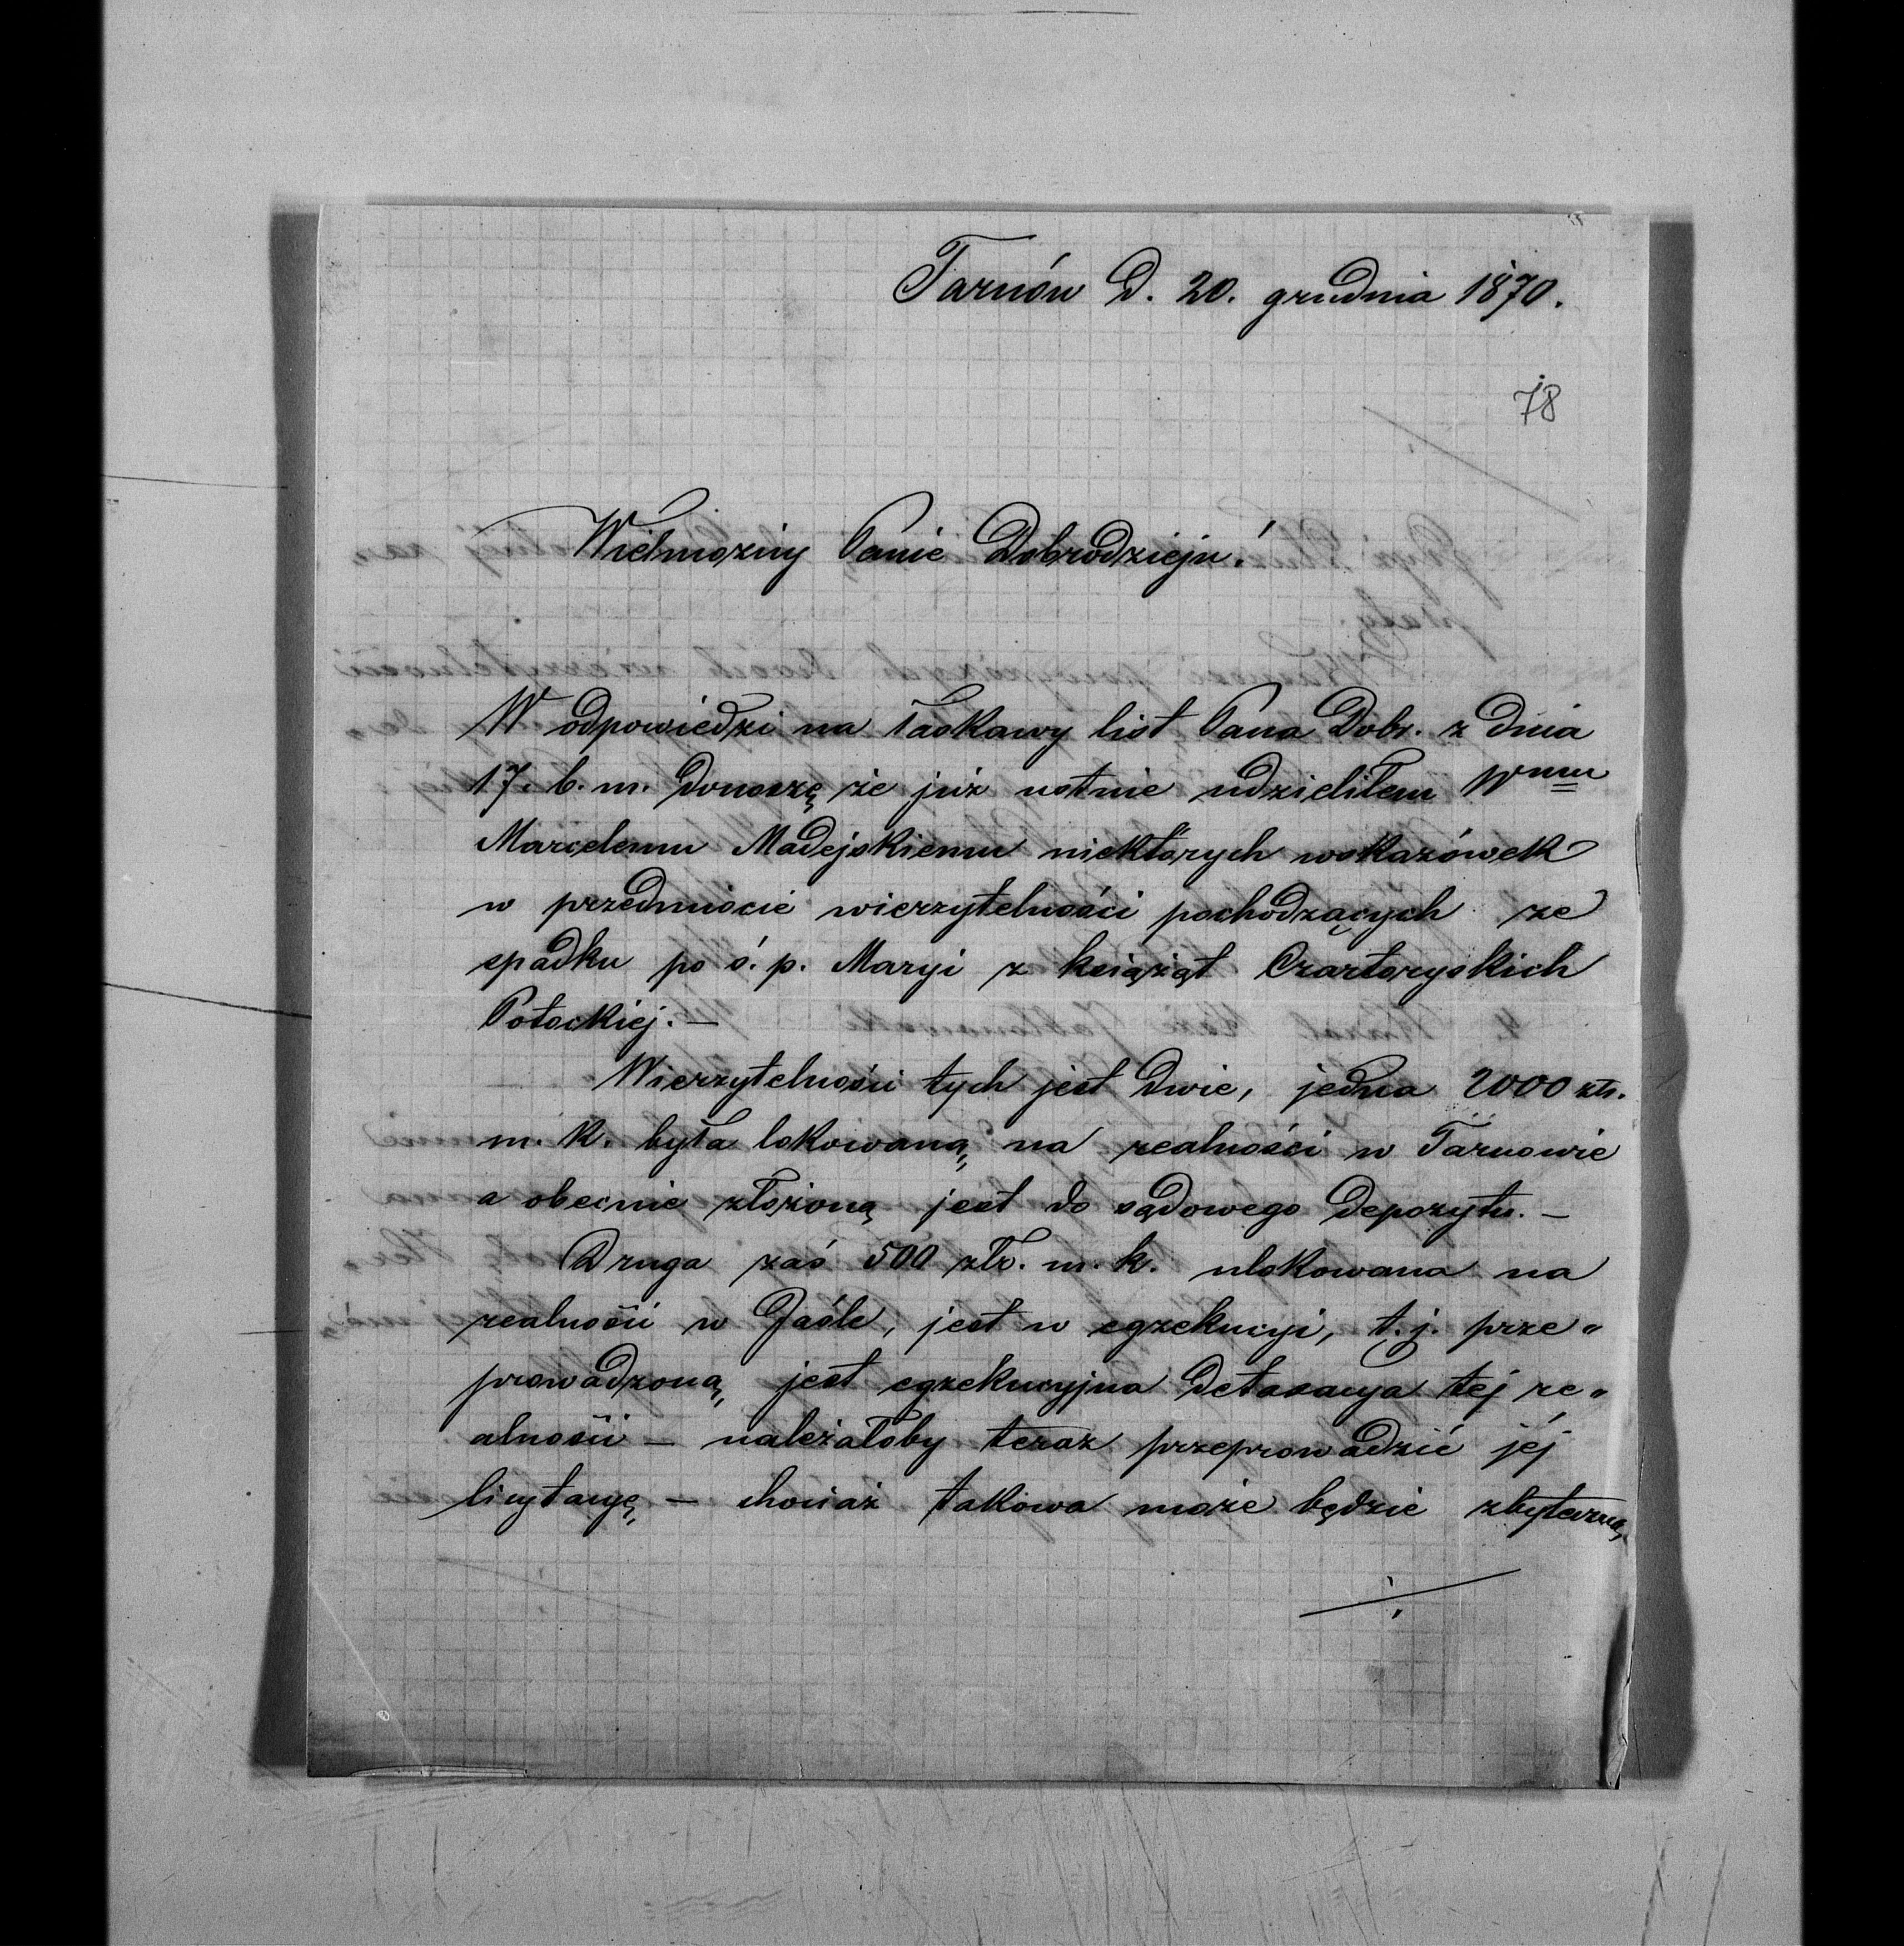 Tarnów d. 20. grudnia 1870.
78
Wielmożny Panie Dobrodzieju!
W odpowiedzi na łaskawy list Pana Dobr. z dnia
17. b. m. donoszę że już ustnie udzieliłem Wmu
Marcelemu Madejskiemu niektórych wskazówek
w przedmiocie wierzytelności pochodzących ze
spadku po ś. p. Maryi z książąt Czartoryskich
Potockiej. —
Wierzytelności tych jest dwie, jedna 2000 złr.
m. k. była lokowaną na realności w Tarnowie
a obecnie złożoną jest do sądowego depozytu. —
Druga zaś 500 złr. m. k. ulokowana na
realności w Jaśle, jest w egzekucyi, t. j. prze„
prowadzoną jest egzekucyjna detaxacya tej re„
alności — należałoby teraz przeprowadzić jéj
licytacyę — chociaż takowa może będzie zbyteczną
./.